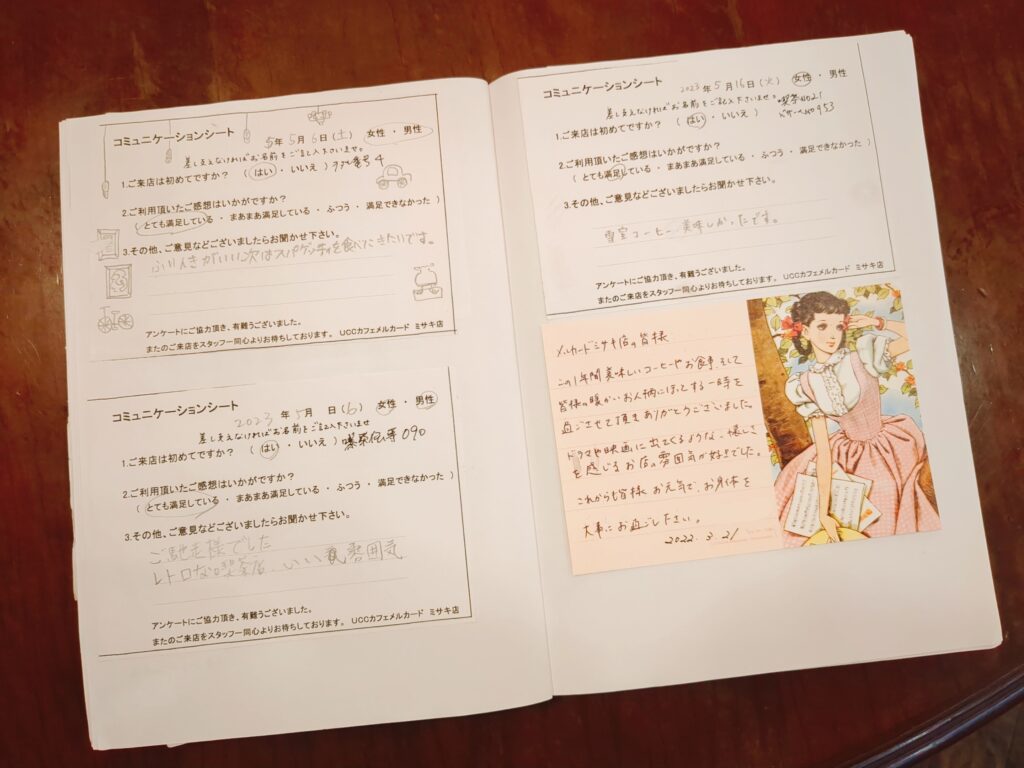 コミュニケーションシート
5年 5月 6日(土) 女性 ・ 男性
差し支えなければお名前をご記入下さいませ。
1.ご来店は初めてですか? ( はい ・ いいえ ) 番号 4
2.ご利用頂いたご感想はいかがですか?
( とても満足している ・ まあまあ満足している ・ ふつう ・ 満足できなかった )
3.その他、ご意見などございましたらお聞かせ下さい。
ふんいきがいい次はスパゲッティを食べにきたいです。
アンケートにご協力頂き、有難うございました。
またのご来店をスタッフ一同心よりお待ちしております。 UCCカフェメルカード ミサキ店
コミュニケーションシート
2023 年 5月 日(6) 女性 ・ 男性
差し支えなければお名前をご記入下さいませ
1.ご来店は初めてですか? ( はい ・ いいえ ) 喫茶 090
2.ご利用頂いたご感想はいかがですか?
( とても満足している ・ まあまあ満足している ・ ふつう ・ 満足できなかった )
3.その他、ご意見などございましたらお聞かせ下さい。
ご馳走様でした
レトロな喫茶店、いい 雰囲気
アンケートにご協力頂き、有難うございました。
またのご来店をスタッフ一同心よりお待ちしております。 UCCカフェメルカード ミサキ店
コミュニケーションシート
2023 年 5月 16日(火) 女性 ・ 男性
差し支えなければお名前をご記入下さいませ。 喫茶No21
1.ご来店は初めてですか? ( はい ・ いいえ ) No 953
2.ご利用頂いたご感想はいかがですか?
( とても満足している ・ まあまあ満足している ・ ふつう ・ 満足できなかった )
3.その他、ご意見などございましたらお聞かせ下さい。
雪室コーヒー美味しかったです。
アンケートにご協力頂き、有難うございました。
またのご来店をスタッフ一同心よりお待ちしております。 UCCカフェメルカード ミサキ店
メルカードミサキ店の皆様
この1年間美味しいコーヒーやお食事、そして
皆様の暖かいお人柄にほっとする一時を
過ごさせて頂きありがとうございました。
ドラマや映画に出てくるような、懐しさ
を感じるお店の雰囲気が好きでした。
これからも皆様 お元気で、お身体を
大事にお過ごし下さい。
2022. 3. 21